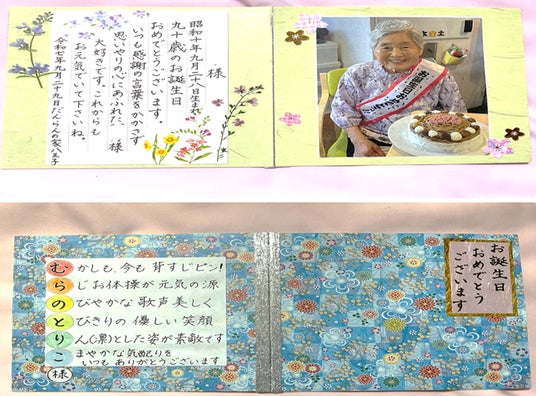 様
昭和十年九月二十八日生まれ
九十歳のお誕生日
おめでとうございます。
いつも感謝の言葉をかかさず
思いやりの心にあふれた 様
大好きです。これからも
お元気でいて下さいね。
令和七年九月二十九日だんらんの家八王子
むかしも、今も 背すじピン!
らじお体操が元気の源
のびやかな歌声美しく
とびきりの 優しい 笑顔
りん(凛)とした姿が素敵です
こまやかな気配りを
いつも ありがとうございます
様
お誕生日
おめでとう
ございます